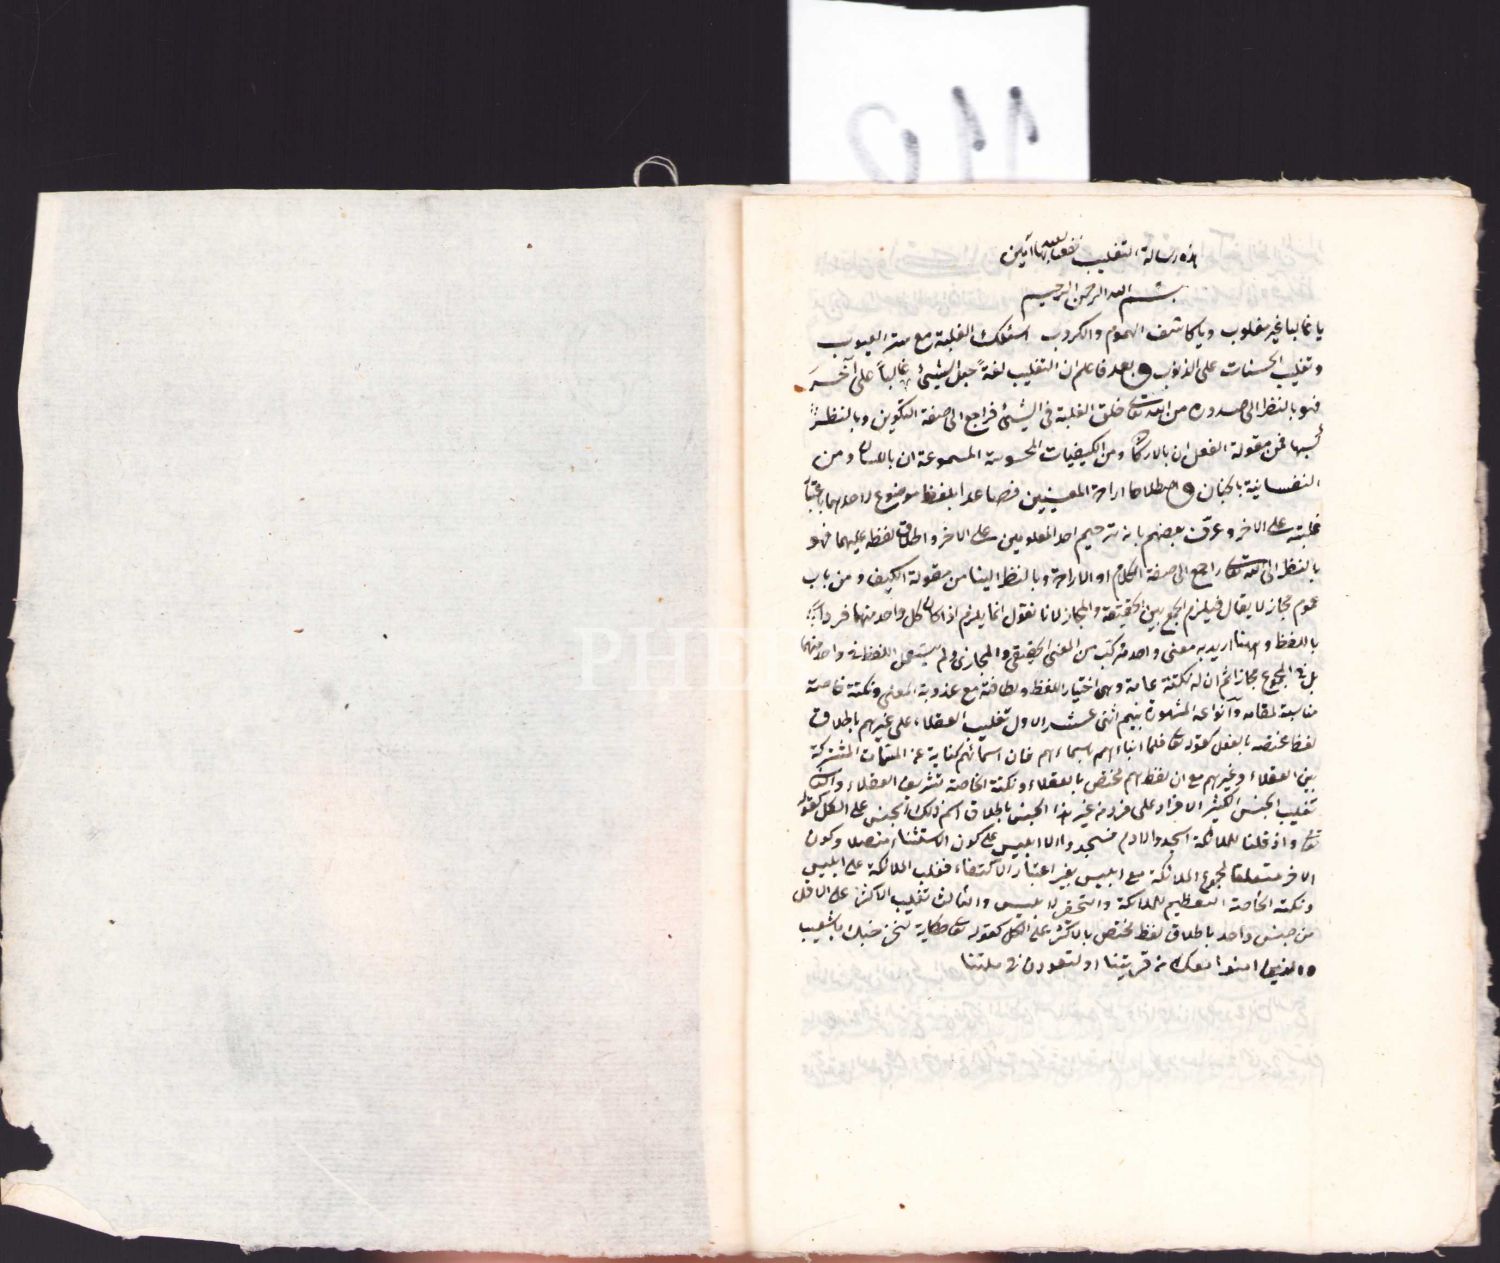 110
هذه رسالة التغليب نفعنا الله بها آمين
بسم الله الرحمن الرحيم
يا غالبا غير مغلوب ويا كاشف الهموم والكروب اسئلك الغلبة مع ستر العيوب
وتغليب الحسنات على الذنوب وبعد فاعلم ان التغليب لغةً جعل الشيئ غالباً على آخر
فهو بالنظر الى صدوره من الله تعا خلق الغلبة في الشيئ فراجع الى صفة التكوين وبالنظر
كسبها فمن مقولة الفعل ان بالاركان ومن الكيفيات المحسوسة المسموعة ان باللسان ومن
النفسانية بالجنان واصطلاحا ارادة المعنيين فصاعدا بلفظ موضوع لاحدهما باعتبار
غلبته على الاخر وعرّف بعضهم بانه ترجيح احد المعلومين على الاخر واطلاق لفظه عليهما فهو
بالنظر الى الله تعا راجع الى صفة الكلام او الارادة وبالنظر الينا من مقولة الكيف ومن باب
عموم مجاز لا يقال فيلزم الجمع بين الحقيقة والمجاز لانا نقول انما يلزم اذا كان كل واحد منهما مراداً
باللفظ وههنا اريد به معنى واحد مركب من المعنى الحقيقي والمجازي ولم يستعمل اللفظ في واحد منهما
بل في المجموع مجازا ثم ان له نكتة عامة وهي اختيار اللفظ ولطافته مع عذوبة المعنى ونكتة خاصة
مناسبة لمقامه وانواعه المشهورة بينهم اثنى عشر الاول تغليب العقلاء على غيرهم باطلاق
لفظ مختص بالعقل كقوله تعا فلما انباءهم باسماءهم فان اسمائهم كناية عن المسميات المشتركة
بين العقلاء وغيرهم مع ان لفظ هم مختص بالعقلاء ونكتة الخاصة تشريف العقلاء والثاني
تغليب الجنس الكثير الافراد على فرد من غير هذا الجنس باطلاق اسم ذلك الجنس على الكل كقوله
تعا واذ قلنا للملائكة اسجدوا لادم فسجدوا الا ابليس على كون الاستثناء متصلا وكون
الامر متعلقا لمجموع الملائكة مع ابليس بغير اعتبار الاكتفاء فغلب الملائكة على ابليس
ونكتة الخاصة التعظيم للملائكة والتحقير لابليس والثالث تغليب الاكثر على الاقل
من جنس واحد باطلاق لفظ مختص بالاكثر على الكل كقوله تعا حكاية لنخرجنك يا شعيب
والذين امنوا معك من قريتنا او لتعودن في ملتنا